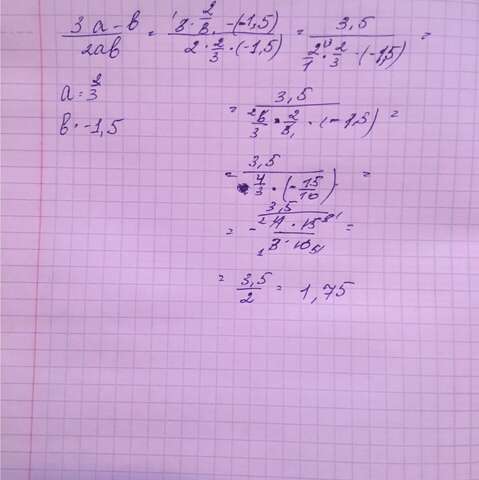 (3a-b)/(2ab) = (3·2/3-(-1,5))/(2·2/3·(-1,5)) = 3,5/(2/1·2/3·(-1,5)) =
a=2/3
b=-1,5
= 3,5/(6/3·2/3·(-1,5)) =
= 3,5/(4/3·(-15/10)) =
= -3,5/((4·15)/(3·10)) =
= 3,5/2 = 1,75